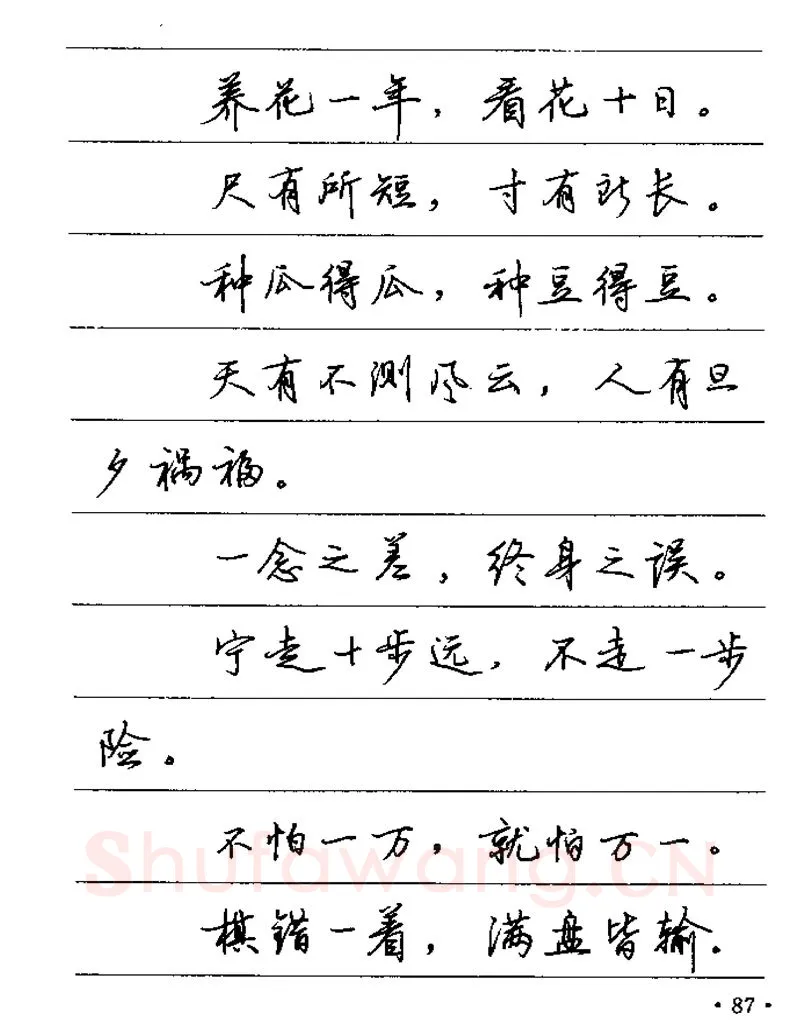 养花一年，看花十日。
尺有所短，寸有所长。
种瓜得瓜，种豆得豆。
天有不测风云，人有旦
夕祸福。
一念之差，终身之误。
宁走十步远，不走一步
险。
不怕一万，就怕万一。
Shufawang.CN
棋错一着，满盘皆输。
·87·